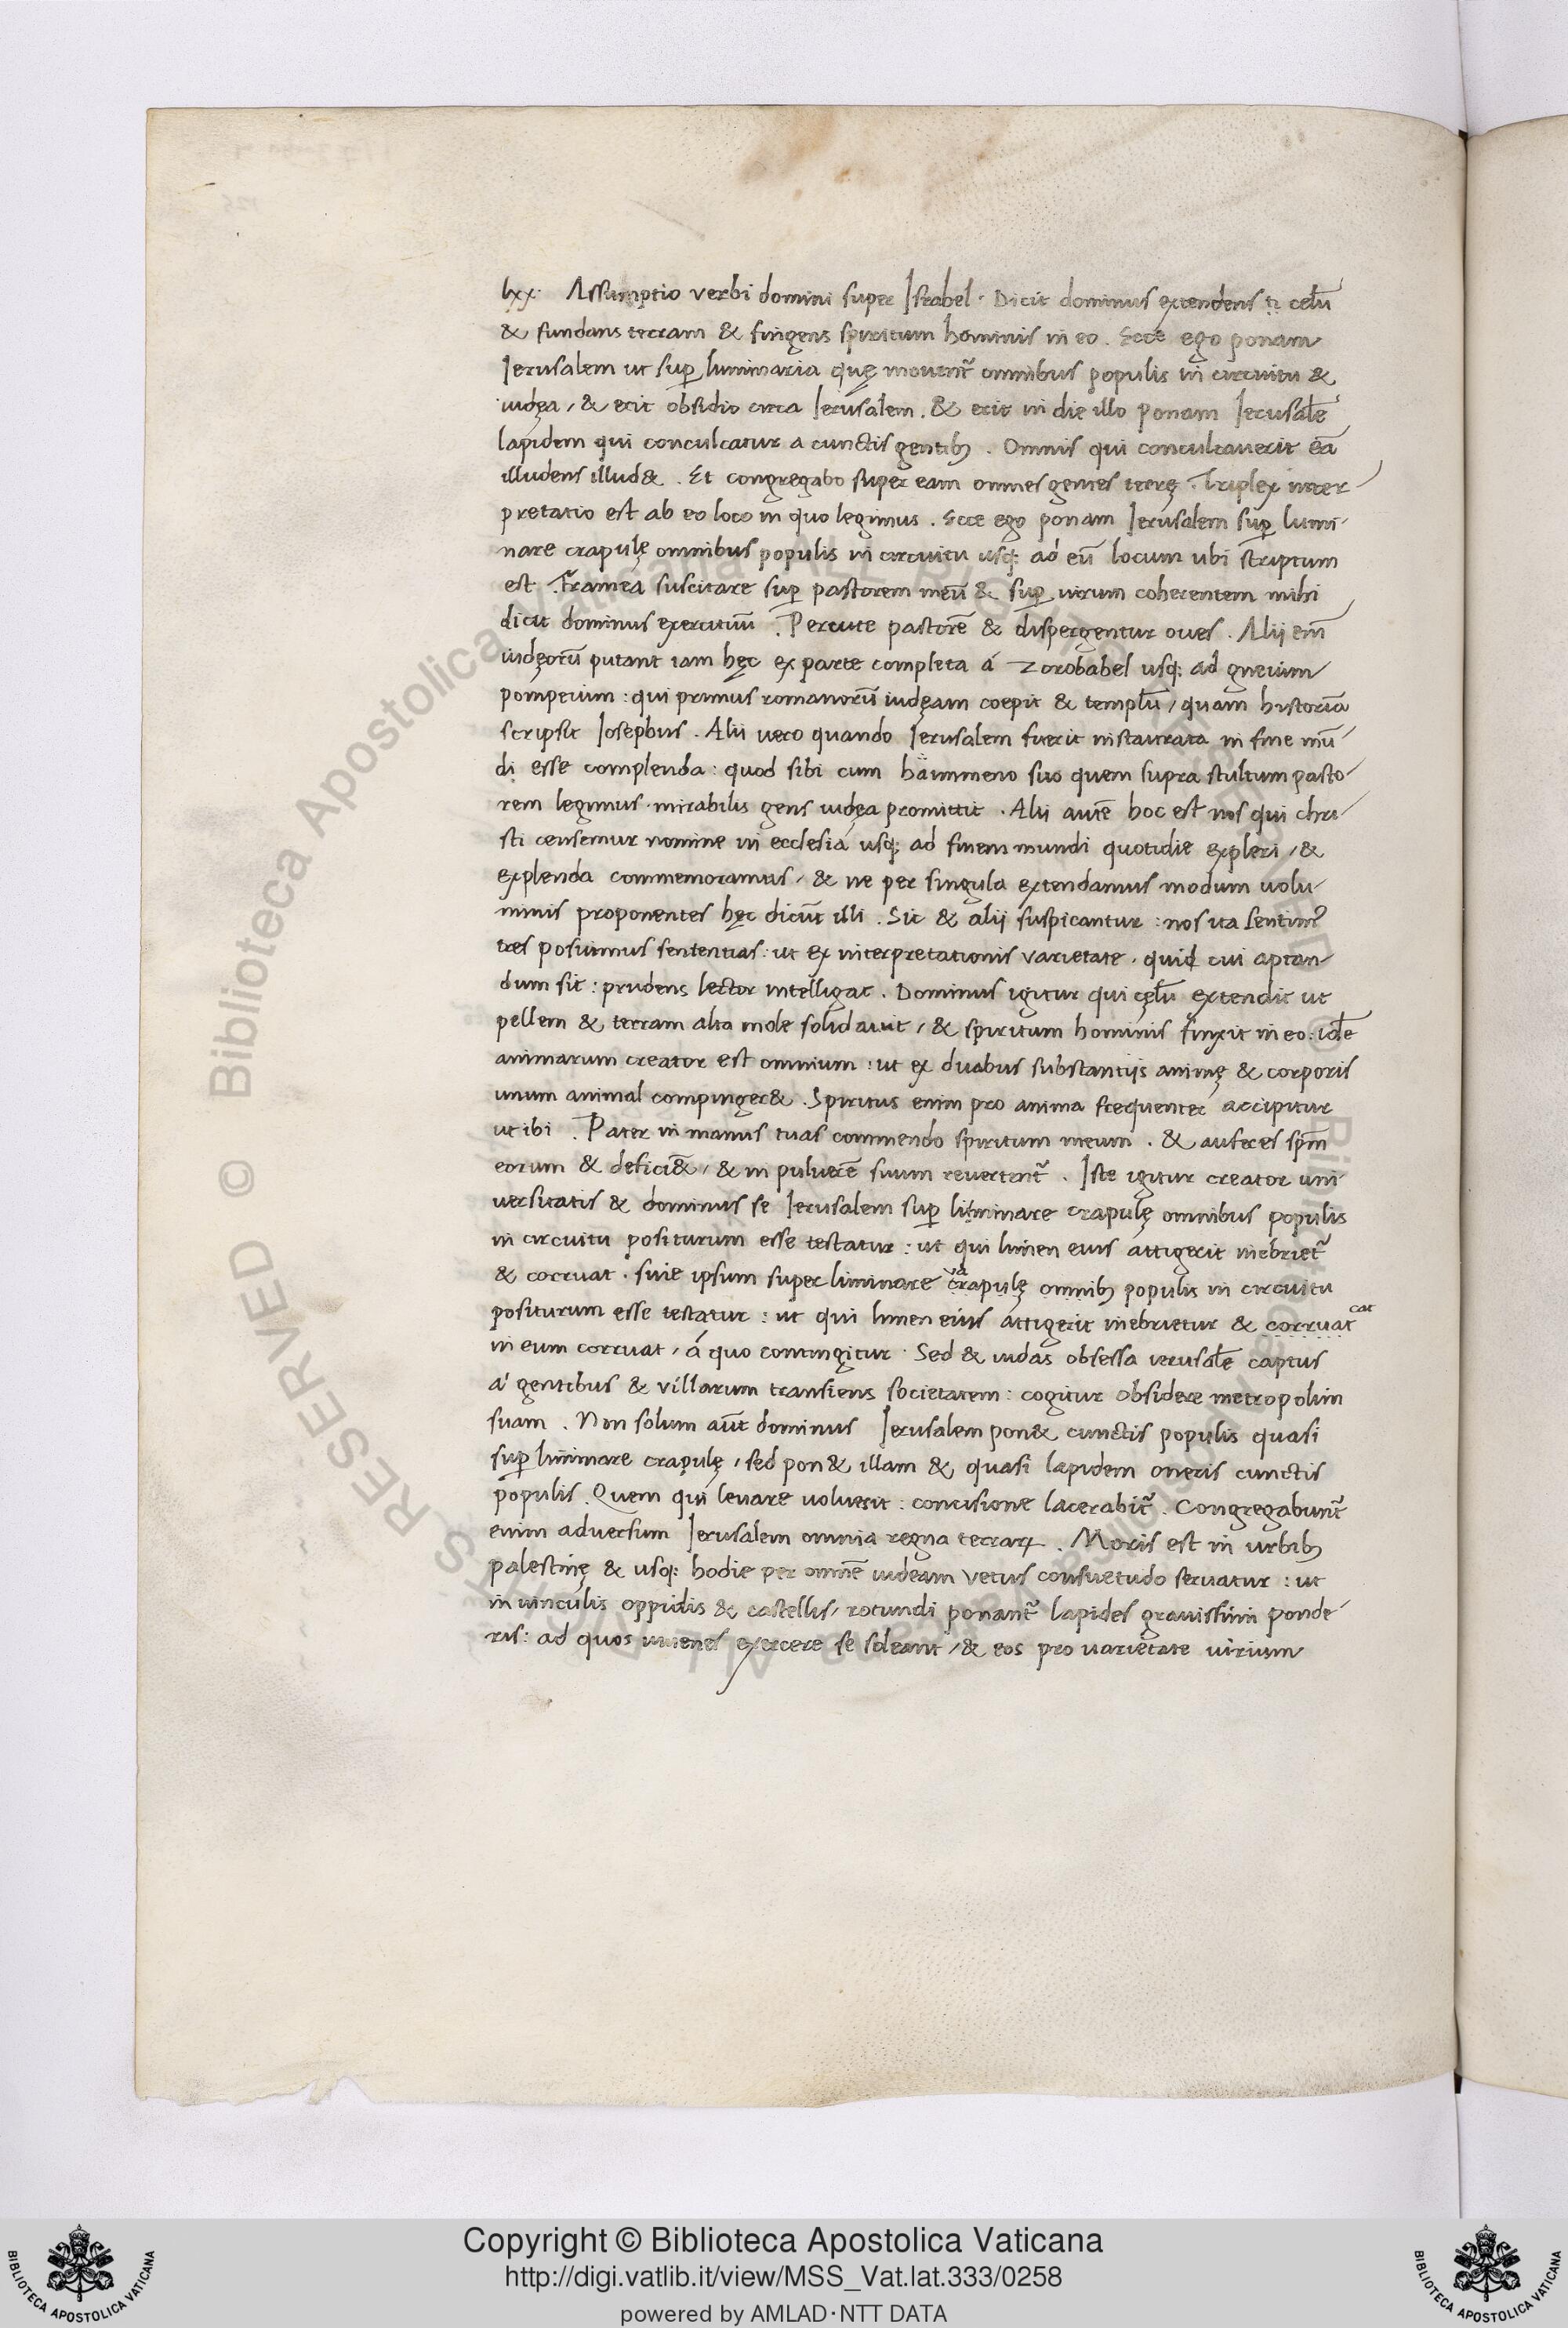 lxx. Assumptio verbi domini super Israhel. Dicit dominus extendens celū
& fundans terram & fingens spiritum hominis in eo. Ecce ego ponam
Ierusalem ut sup̄ luminaria quę mouent᷑ omnibus populis in circuitu &
iudęa, & erit obsidio circa Ierusalem. & erit in die illo ponam Ierusalē
lapidem qui conculcatur a cunctis gentib;. Omnis qui conculcauerit eā
illudens illud&. Et congregabo super eam omnes gentes terrę. Triplex inter
pretatio est ab eo loco in quo legimus. Ecce ego ponam Ierusalem sup̄ lumi
nare crapulę omnibus populis in circuitu usq: ad eū locum ubi scriptum
est. Framea suscitare sup̄ pastorem meū & sup̄ uirum coherentem mihi
dicit dominus exercituū. Percute pastorē & dispergentur oues. Alij em̄
iudęorū putant iam hęc ex parte completa á Zorobabel usq: ad gneium
pompeium: qui primus romanorū iudęam coepit & templū, quam historiā
scripsit Iosephus. Alii uero quando Ierusalem fuerit instaurata in fine mū
di esse complenda: quod sibi cum häimmeno suo quem supra stultum pasto
rem legimus. mirabilis gens iudęa promittit. Alii autē hoc est nos qui chri
sti censemur nomine in ecclesia usq; ad finem mundi quotidie expleri, &
explenda commemoramus, & ne per singula extendamus modum uolu
minis proponentes hęc dicūt illi. Sic & alij suspicantur: nos ita sentim᷒
tres posuimus sententias: ut ex interpretationis varietate, quid cui aptan
dum sit: prudens lector intelligat. Dominus igitur qui cęlū extendit ut
pellem & terram alta mole solidauit, & spiritum hominis finxit in eo: idē
animarum creator est omnium: ut ex duabus substantijs animę & corporis
unum animal compinger&. Spiritus enim pro anima frequenter accipitur
ut ibi. Pater in manus tuas commendo spiritum meum. & auferes spm̄
eorum & defici&̄, & in puluerē suum reuertent᷑. Iste igitur creator uni
uersitatis & dominus se Ierusalem sup̄ liminare crapulę omnibus populis
in circuitu positurum esse testatur: ut qui limen eius attigerit inebriet᷑
& corruat. siue ipsum superliminare crapulę omnib; populis in circuitu
positurum esse testatur: ut qui limen eius attigerit inebrietur & corruat cat
in eum corruat, á quo contingitur. Sed & iudas obsessa ierusalē captus
a' gentibus & villarum transiens societatem: cogitur obsidere metropolim
suam. Non solum aūt dominus Ierusalem pon& cunctis populis quasi
sup̄ liminare crapulę, sed pon& illam & quasi lapidem oneris cunctis
populis. Quem qui leuare uoluerit: concisione lacerabit᷑. Congregabunt᷑
enim adversum Ierusalem omnia regna terrarꝝ. Moris est in urbib;
palestinę & usq: hodie per omnē iudeam vetus consuetudo seruatur: ut
in uinculis oppidis & castellis, rotundi ponant᷑ lapides grauissimi ponde
ris: ad quos iuuenes exercere se soleant, & eos pro uarietate uirium
Copyright © Biblioteca Apostolica Vaticana
http://digi.vatlib.it/view/MSS_Vat.lat.333/0258
powered by AMLAD·NTT DATA